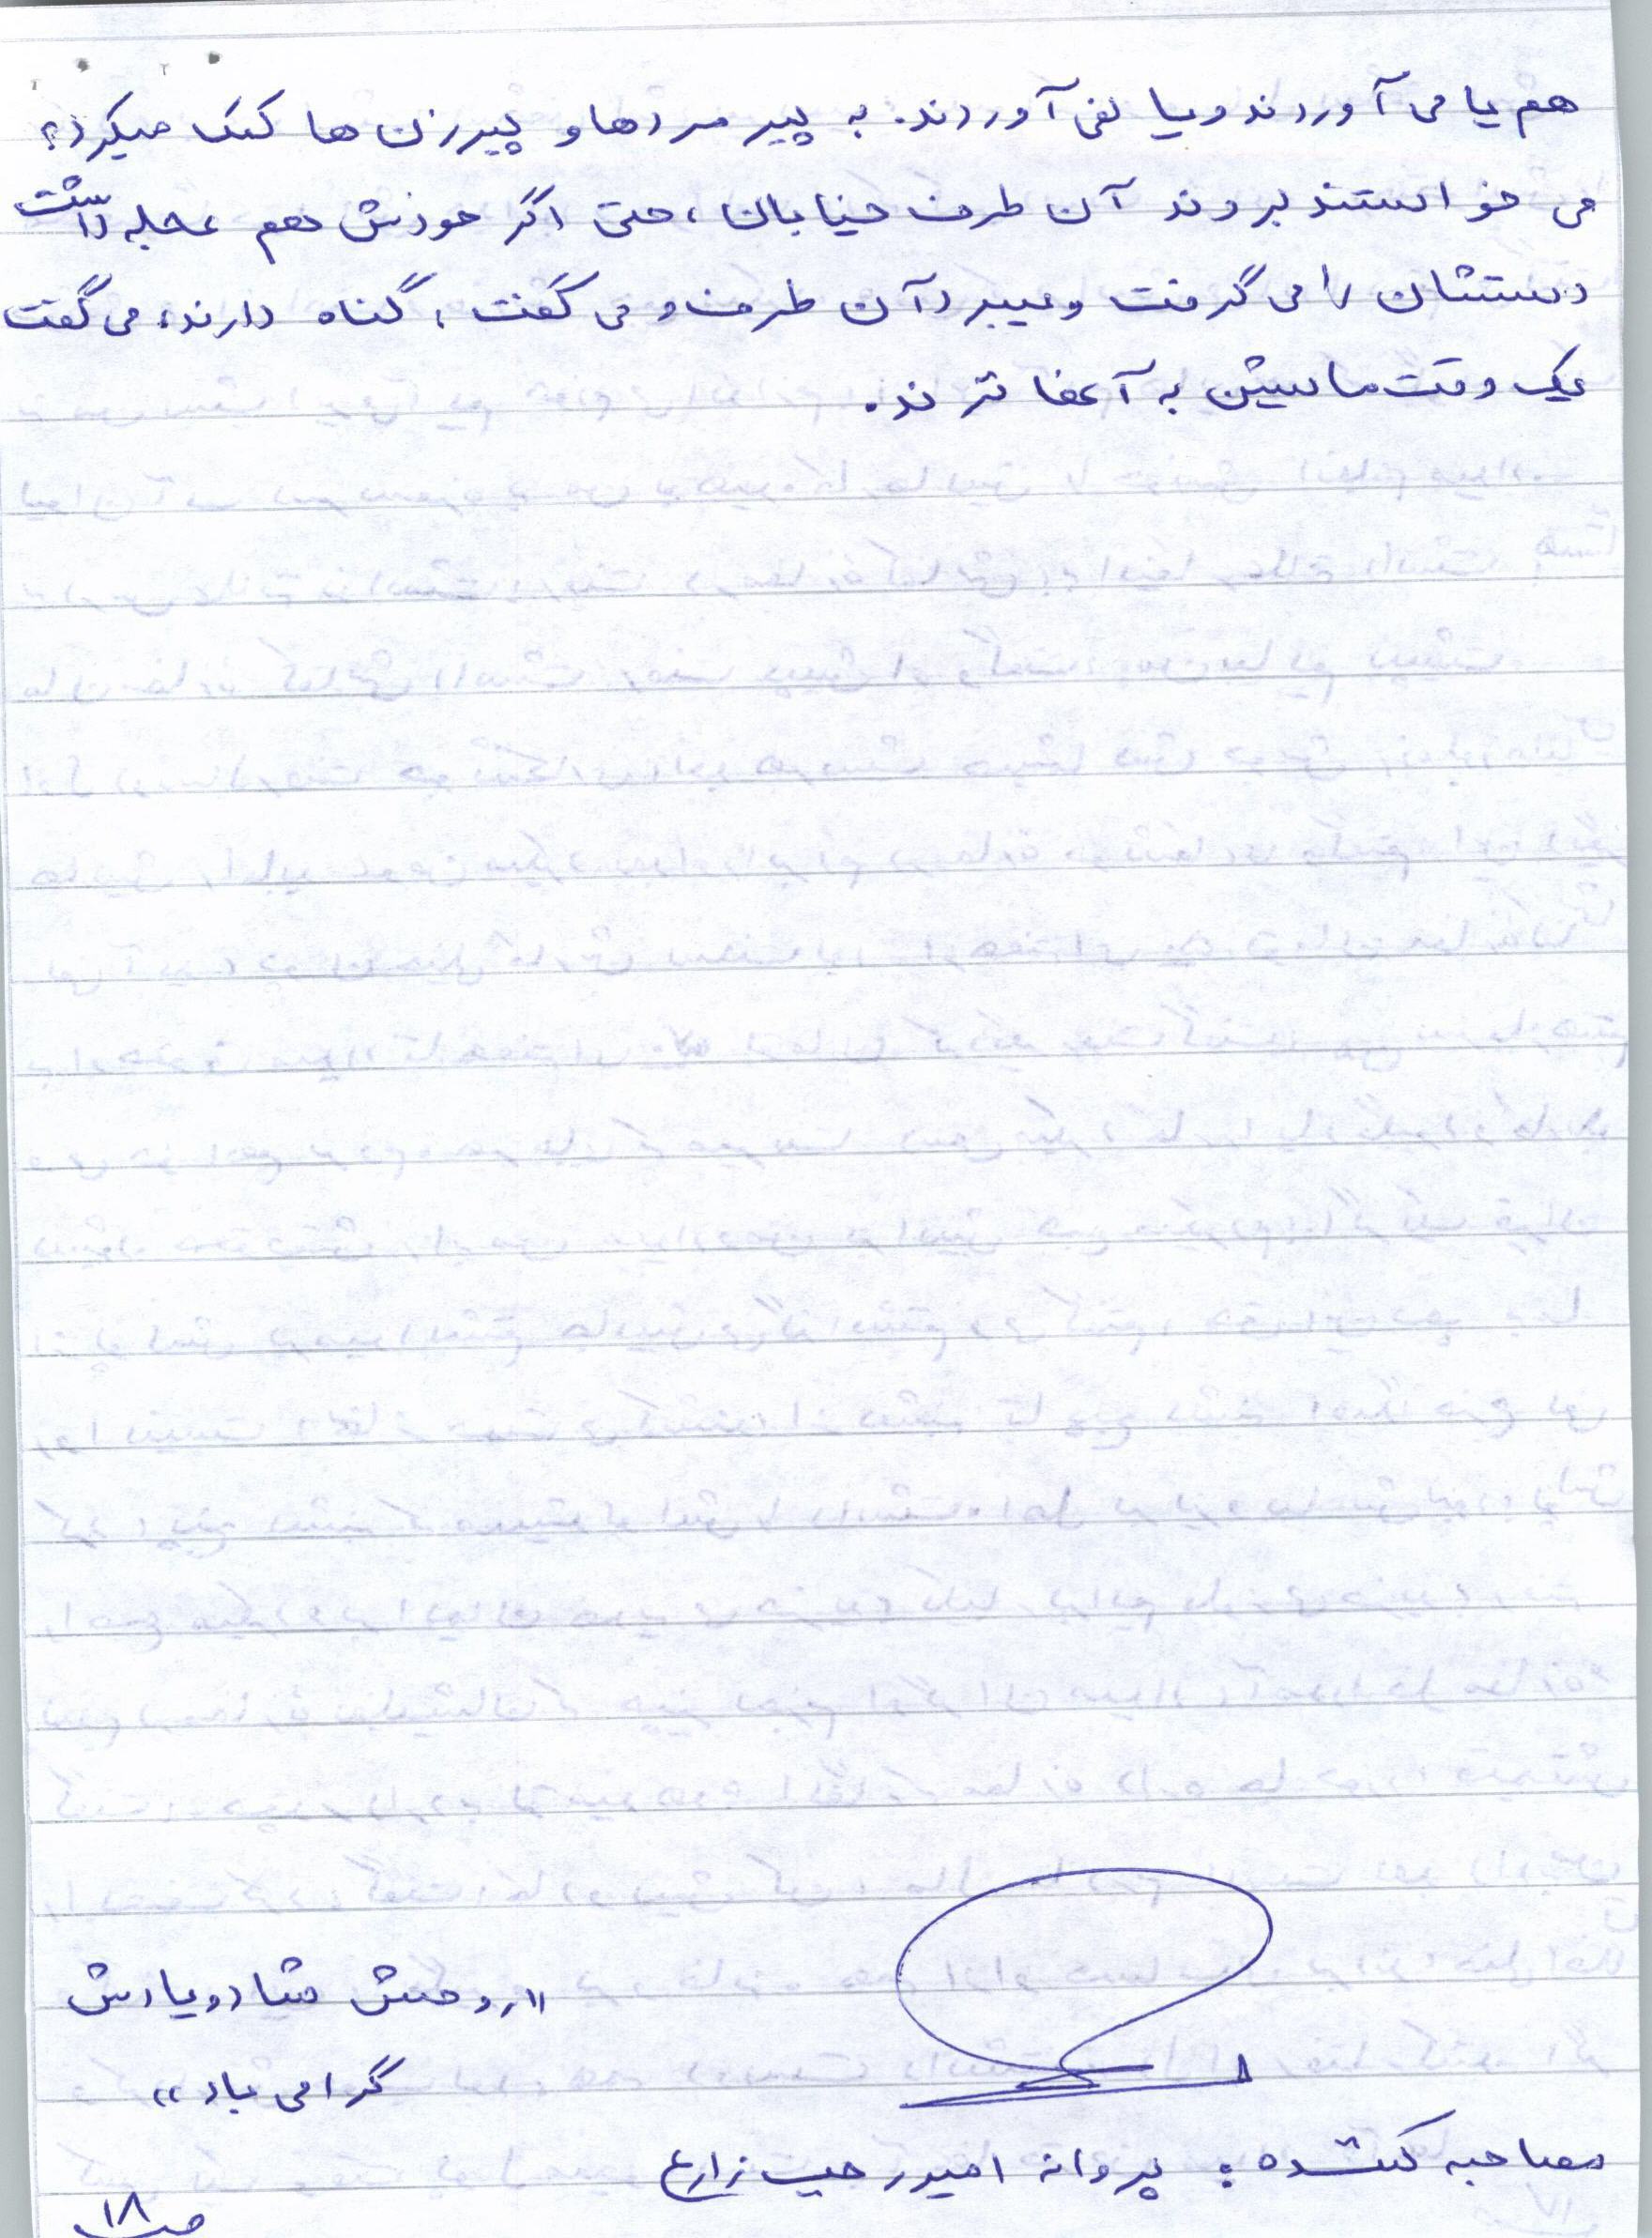 هم یا می آوردند و یا نمی آوردند. به پیر مردها و پیرزن ها کمک میکرد،
می خواستند بروند آن طرف خیابان، حتی اگر خودش هم عجله داشت
دستشان را می گرفت و میبرد آن طرف و می گفت، گناه دارند، می گفت
یک وقت ماشین به آنها نزند.
"روحش شاد و یادش
گرامی باد"
مصاحبه کننده: پروانه امیدرجب زارع
ص ۱۸